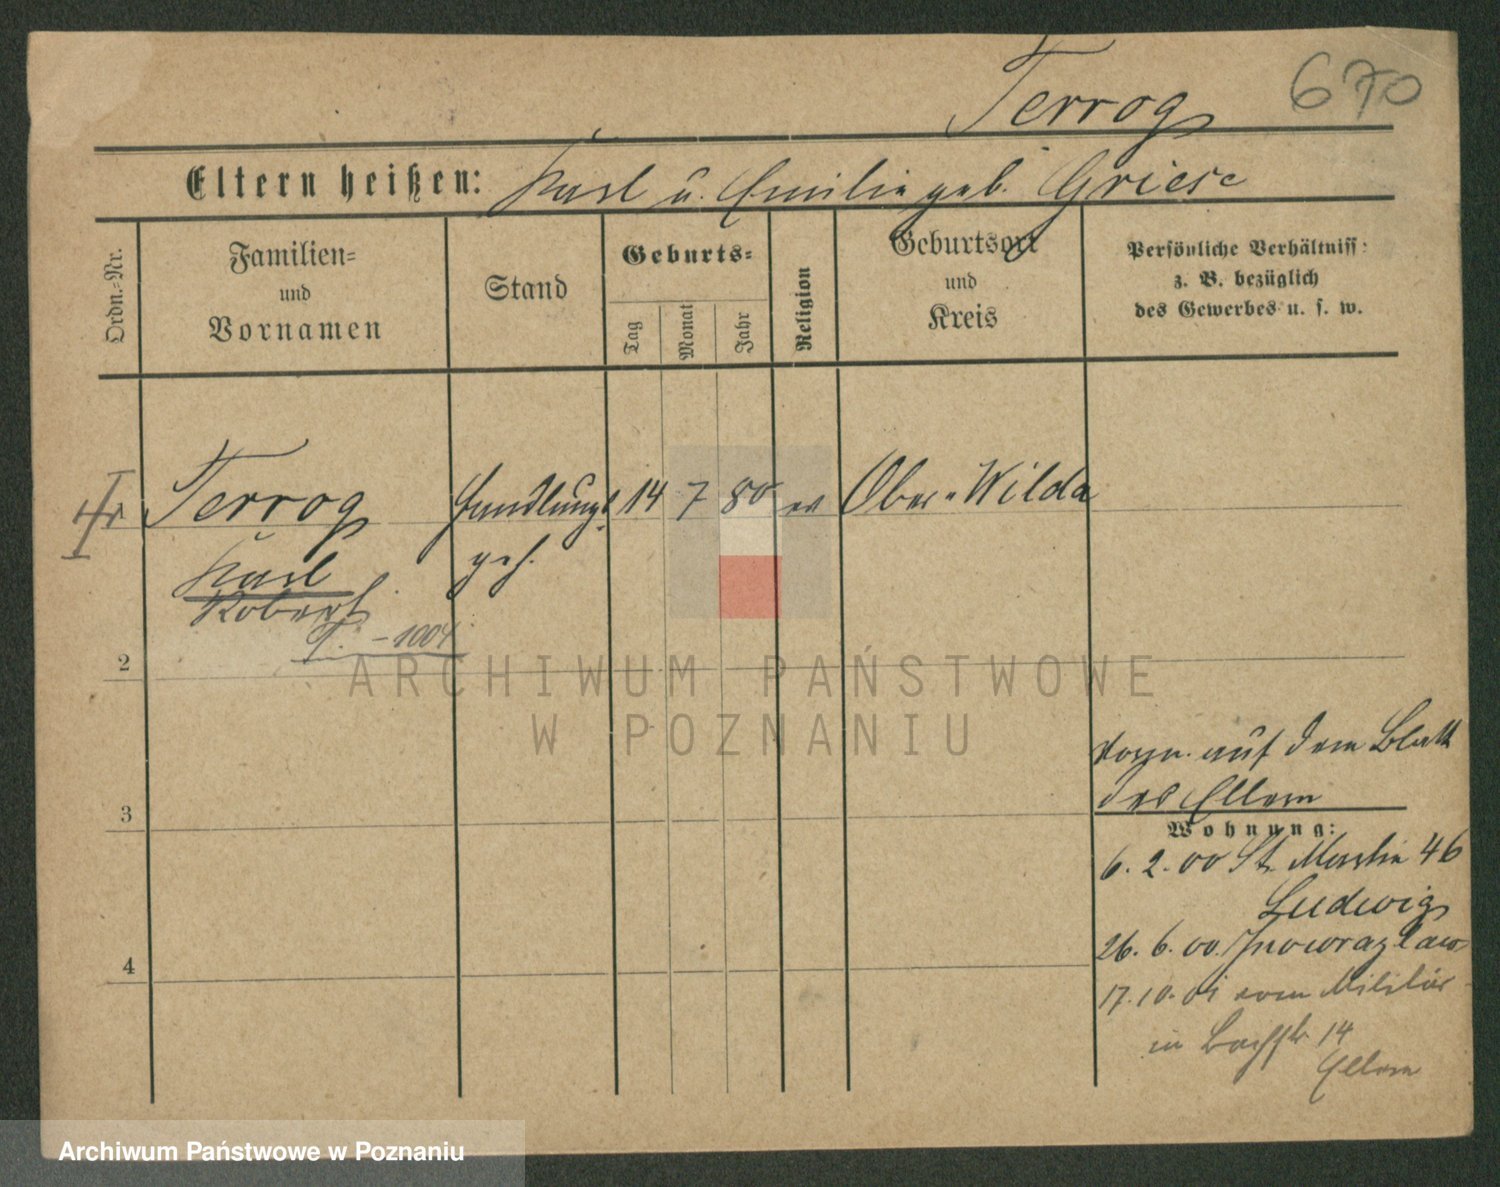 Terrog 670
Eltern heißen: Karl u. Emilie geb. Griese
Ordn.-Nr.
Familien-
und
Vornamen
Stand
Geburts-
Tag
Monat
Jahr
Religion
Geburtsort
und
Kreis
Persönliche Verhältniss:
z. B. bezüglich
des Gewerbes u. s. w.
1 Terrog Handlungs 14 7 80 ev Ober-Wilda
Karl geh.
Robert
T. - 1004
2
ARCHIWUM PAŃSTWOWE
W POZNANIU
auf dem Blatt
3 des Eltern
Wohnung:
6. 2. 00 St. Martin 46
Ludwig
26. 6. 00. Inowrazlaw
4
17. 10. 01 vom Militär
in Bachstr 14
Eltern
Archiwum Państwowe w Poznaniu